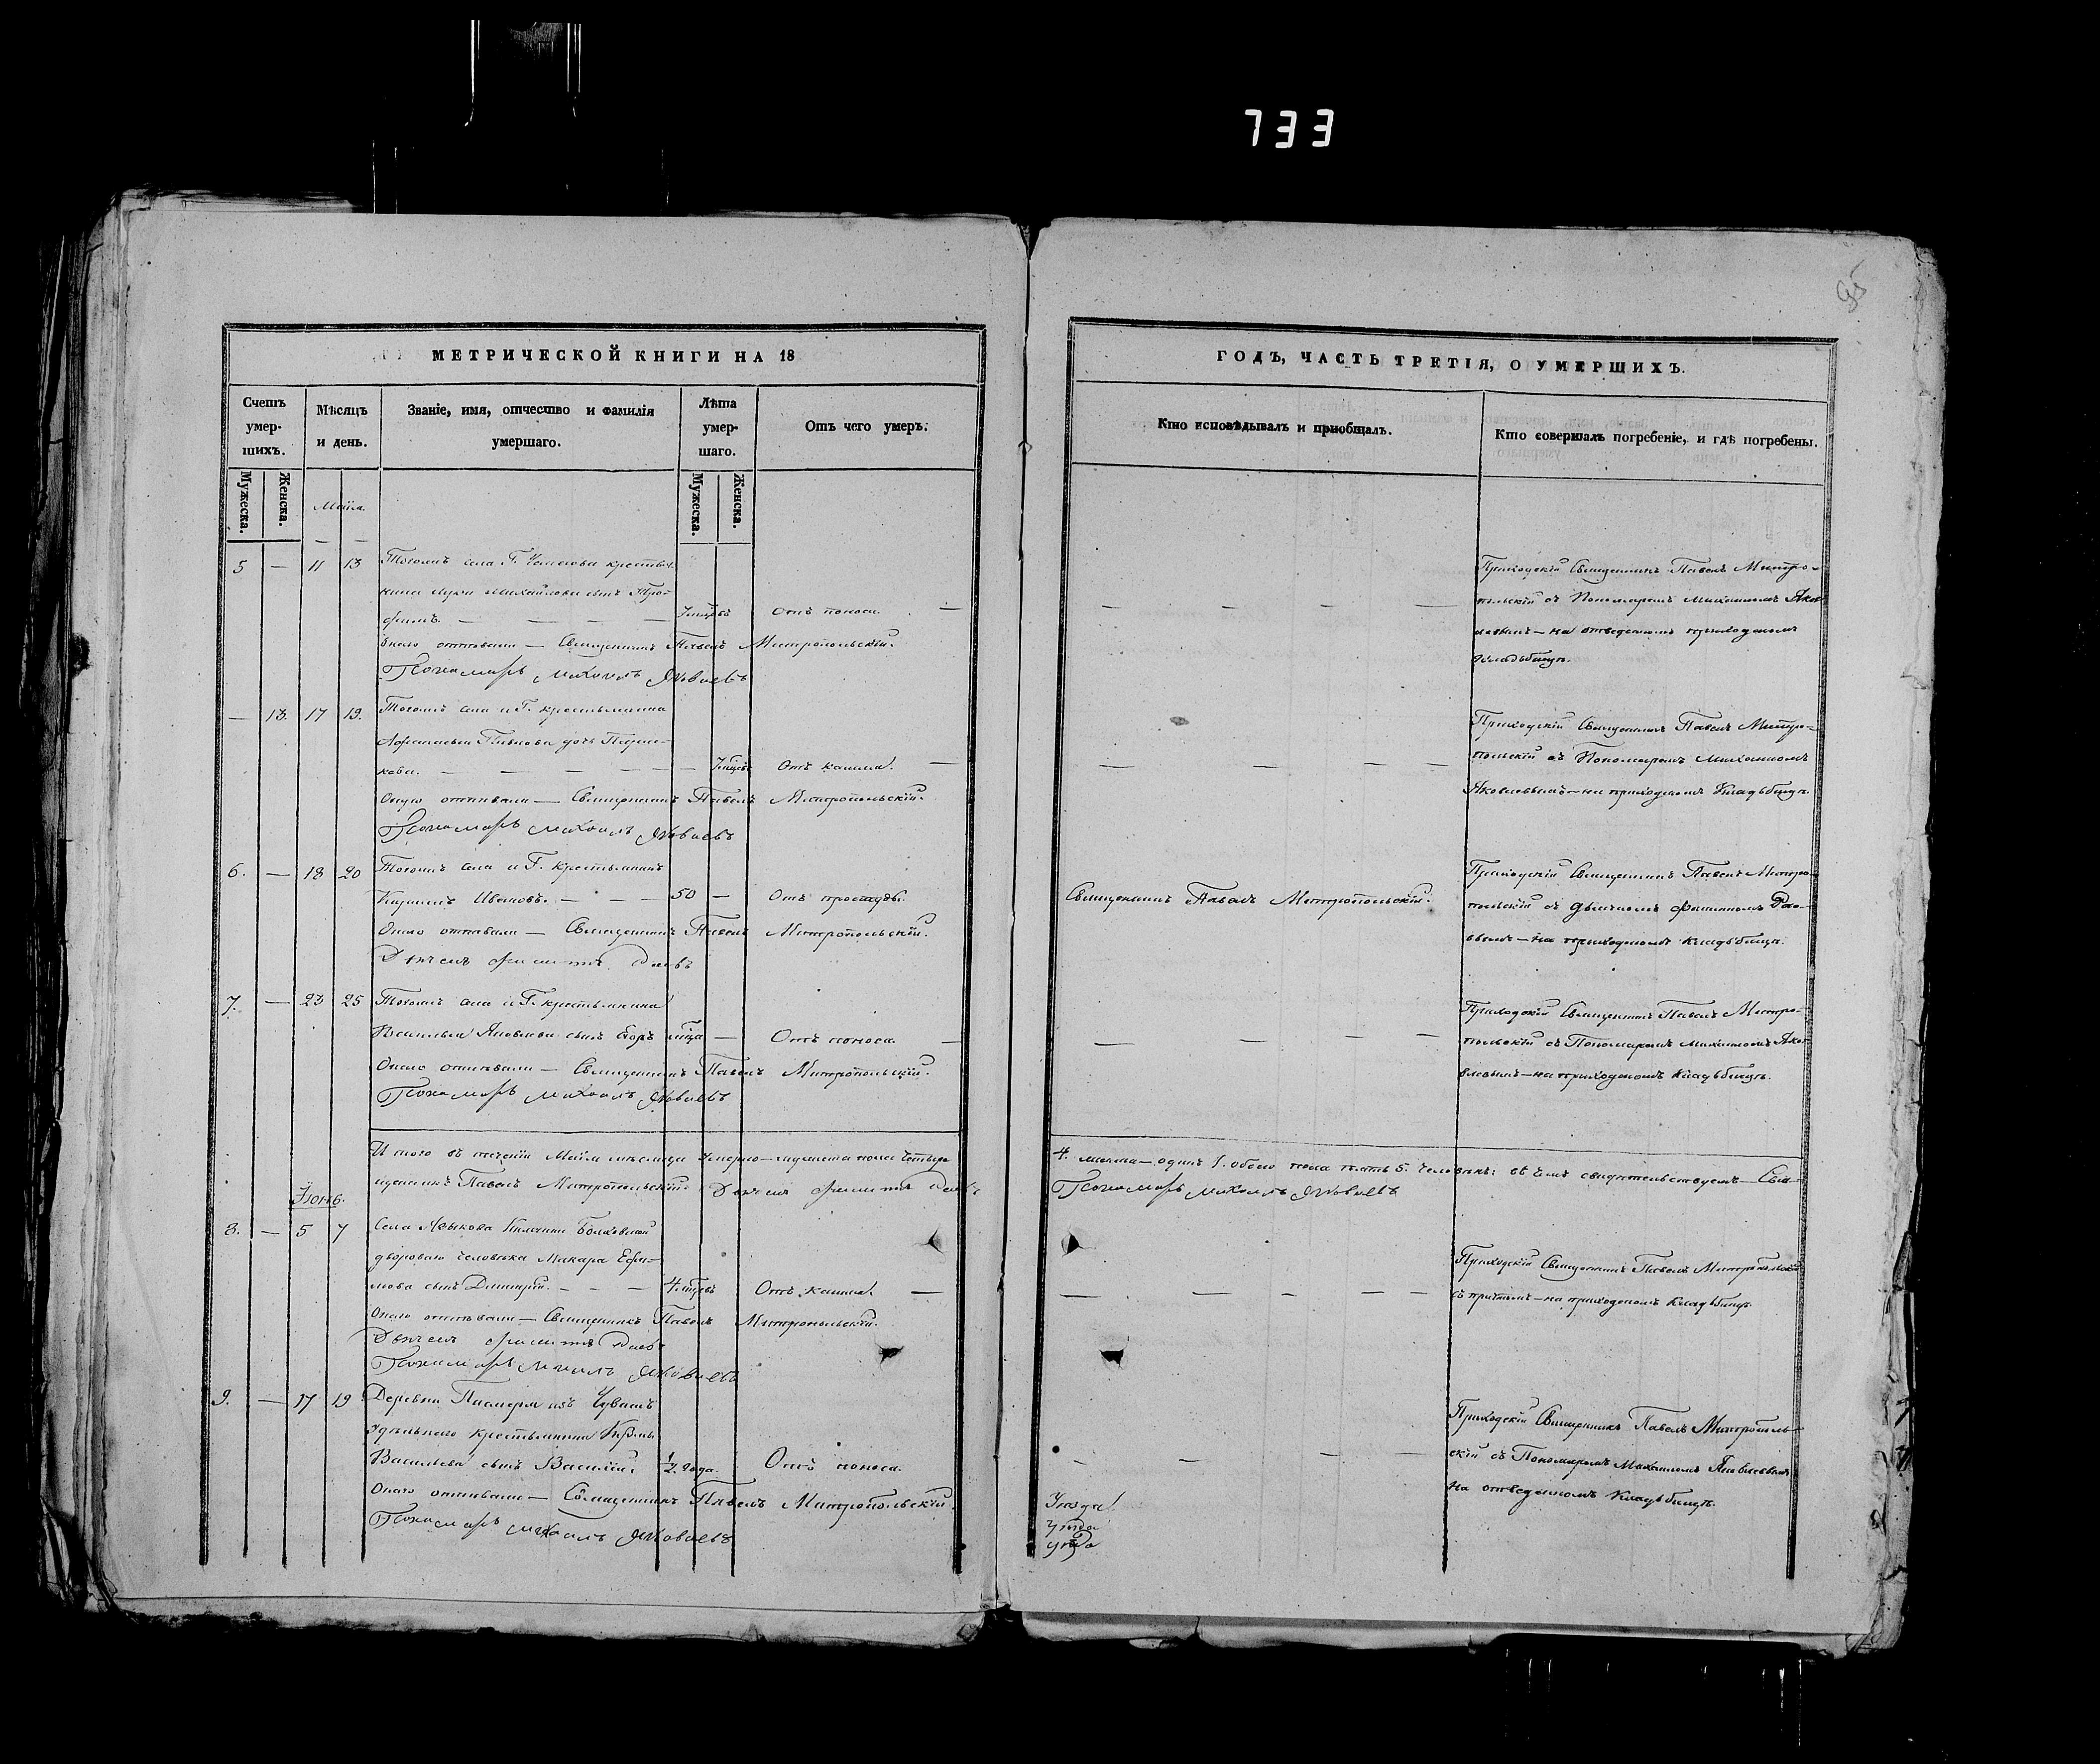 733
95
МЕТРИЧЕСКОЙ КНИГИ НА 18
Счетъ умершихъ.
Мужеска.
Женска.
Мѣсяцъ и день.
Званіе, имя, отчество и фамилія умершаго.
Лѣта умершаго.
Мужеска.
Женска.
Отъ чего умеръ.
Маія.
5 — 11 13 Тогожъ села Г. крестья-
нина Луки Михайлова сынъ Тро-
фимъ. — — — — Отъ поноса. —
Онаго отпѣвали — Священникъ Павелъ Митропольскій.
Пономарь Михаилъ Яковлевъ
— 13. 17 19. Тогожъ села и Г. крестьянина
дочь Параске-
ва. — — — — — — Отъ кашля. —
Оную отпѣвали — Священникъ Павелъ Митропольскій.
Пономарь Михаилъ Яковлевъ
6. — 18 20 Тогожъ села и Г. крестьянинъ
Кириллъ Ивановъ. — — — 50 — Отъ простуды.
Онаго отпѣвали — Священникъ Павелъ Митропольскій.
Дьячекъ
7. — 23 25 Тогожъ села и Г. крестьянина
Василья Яковлева сынъ Егоръ — Отъ поноса —
Онаго отпѣвали — Священникъ Павелъ Митропольскій.
Пономарь Михаилъ Яковлевъ
И того въ теченіи Маія мѣсяца умерло — мужеска пола четыре
щенникъ Павелъ Митропольскій. Дьячекъ
Іюнь.
8. — 5 7 Села Языкова
двороваго человѣка Макара Ефи-
мова сынъ Дмитрій. — — — 4 Отъ кашля. —
Онаго отпѣвали — Священникъ Павелъ Митропольскій.
Дьячекъ
Пономарь Михаилъ Яковлевъ
9. — 17 19 Деревни изъ Чувашъ
Удѣльнаго крестьянина
Васильева сынъ Василій. 1/2 года. Отъ поноса.
Онаго отпѣвали — Священникъ Павелъ Митропольскій.
Пономарь Михаилъ Яковлевъ
ГОДЪ, ЧАСТЬ ТРЕТІЯ, О УМЕРШИХЪ.
Кто исповѣдывалъ и пріобщалъ.
Кто совершалъ погребеніе, и гдѣ погребены.
Приходскій Священникъ Павелъ Митро-
польскій съ Пономаремъ Михаиломъ Яков-
левымъ — на отведенномъ приходскомъ
кладбищѣ.
Приходскій Священникъ Павелъ Митро-
польскій съ Пономаремъ Михаиломъ
Яковлевымъ — на приходскомъ кладбищѣ.
Священникъ Павелъ Митропольскій.
Приходскій Священникъ Павелъ Митро-
польскій съ Дьячкомъ
на приходскомъ кладбищѣ.
Приходскій Священникъ Павелъ Митро-
польскій съ Пономаремъ Михаиломъ Яко-
влевымъ — на приходскомъ кладбищѣ.
4. женска — одинъ 1. обоего пола пять 5. человѣкъ: въ чемъ свидѣтельствуемъ — Свя-
Пономарь Михаилъ Яковлевъ
Приходскій Священникъ Павелъ Митропольскій
съ причтомъ — на приходскомъ кладбищѣ.
Приходскій Священникъ Павелъ Митрополь-
скій съ Пономаремъ Михаиломъ Яковлевымъ
на отведенномъ кладбищѣ.